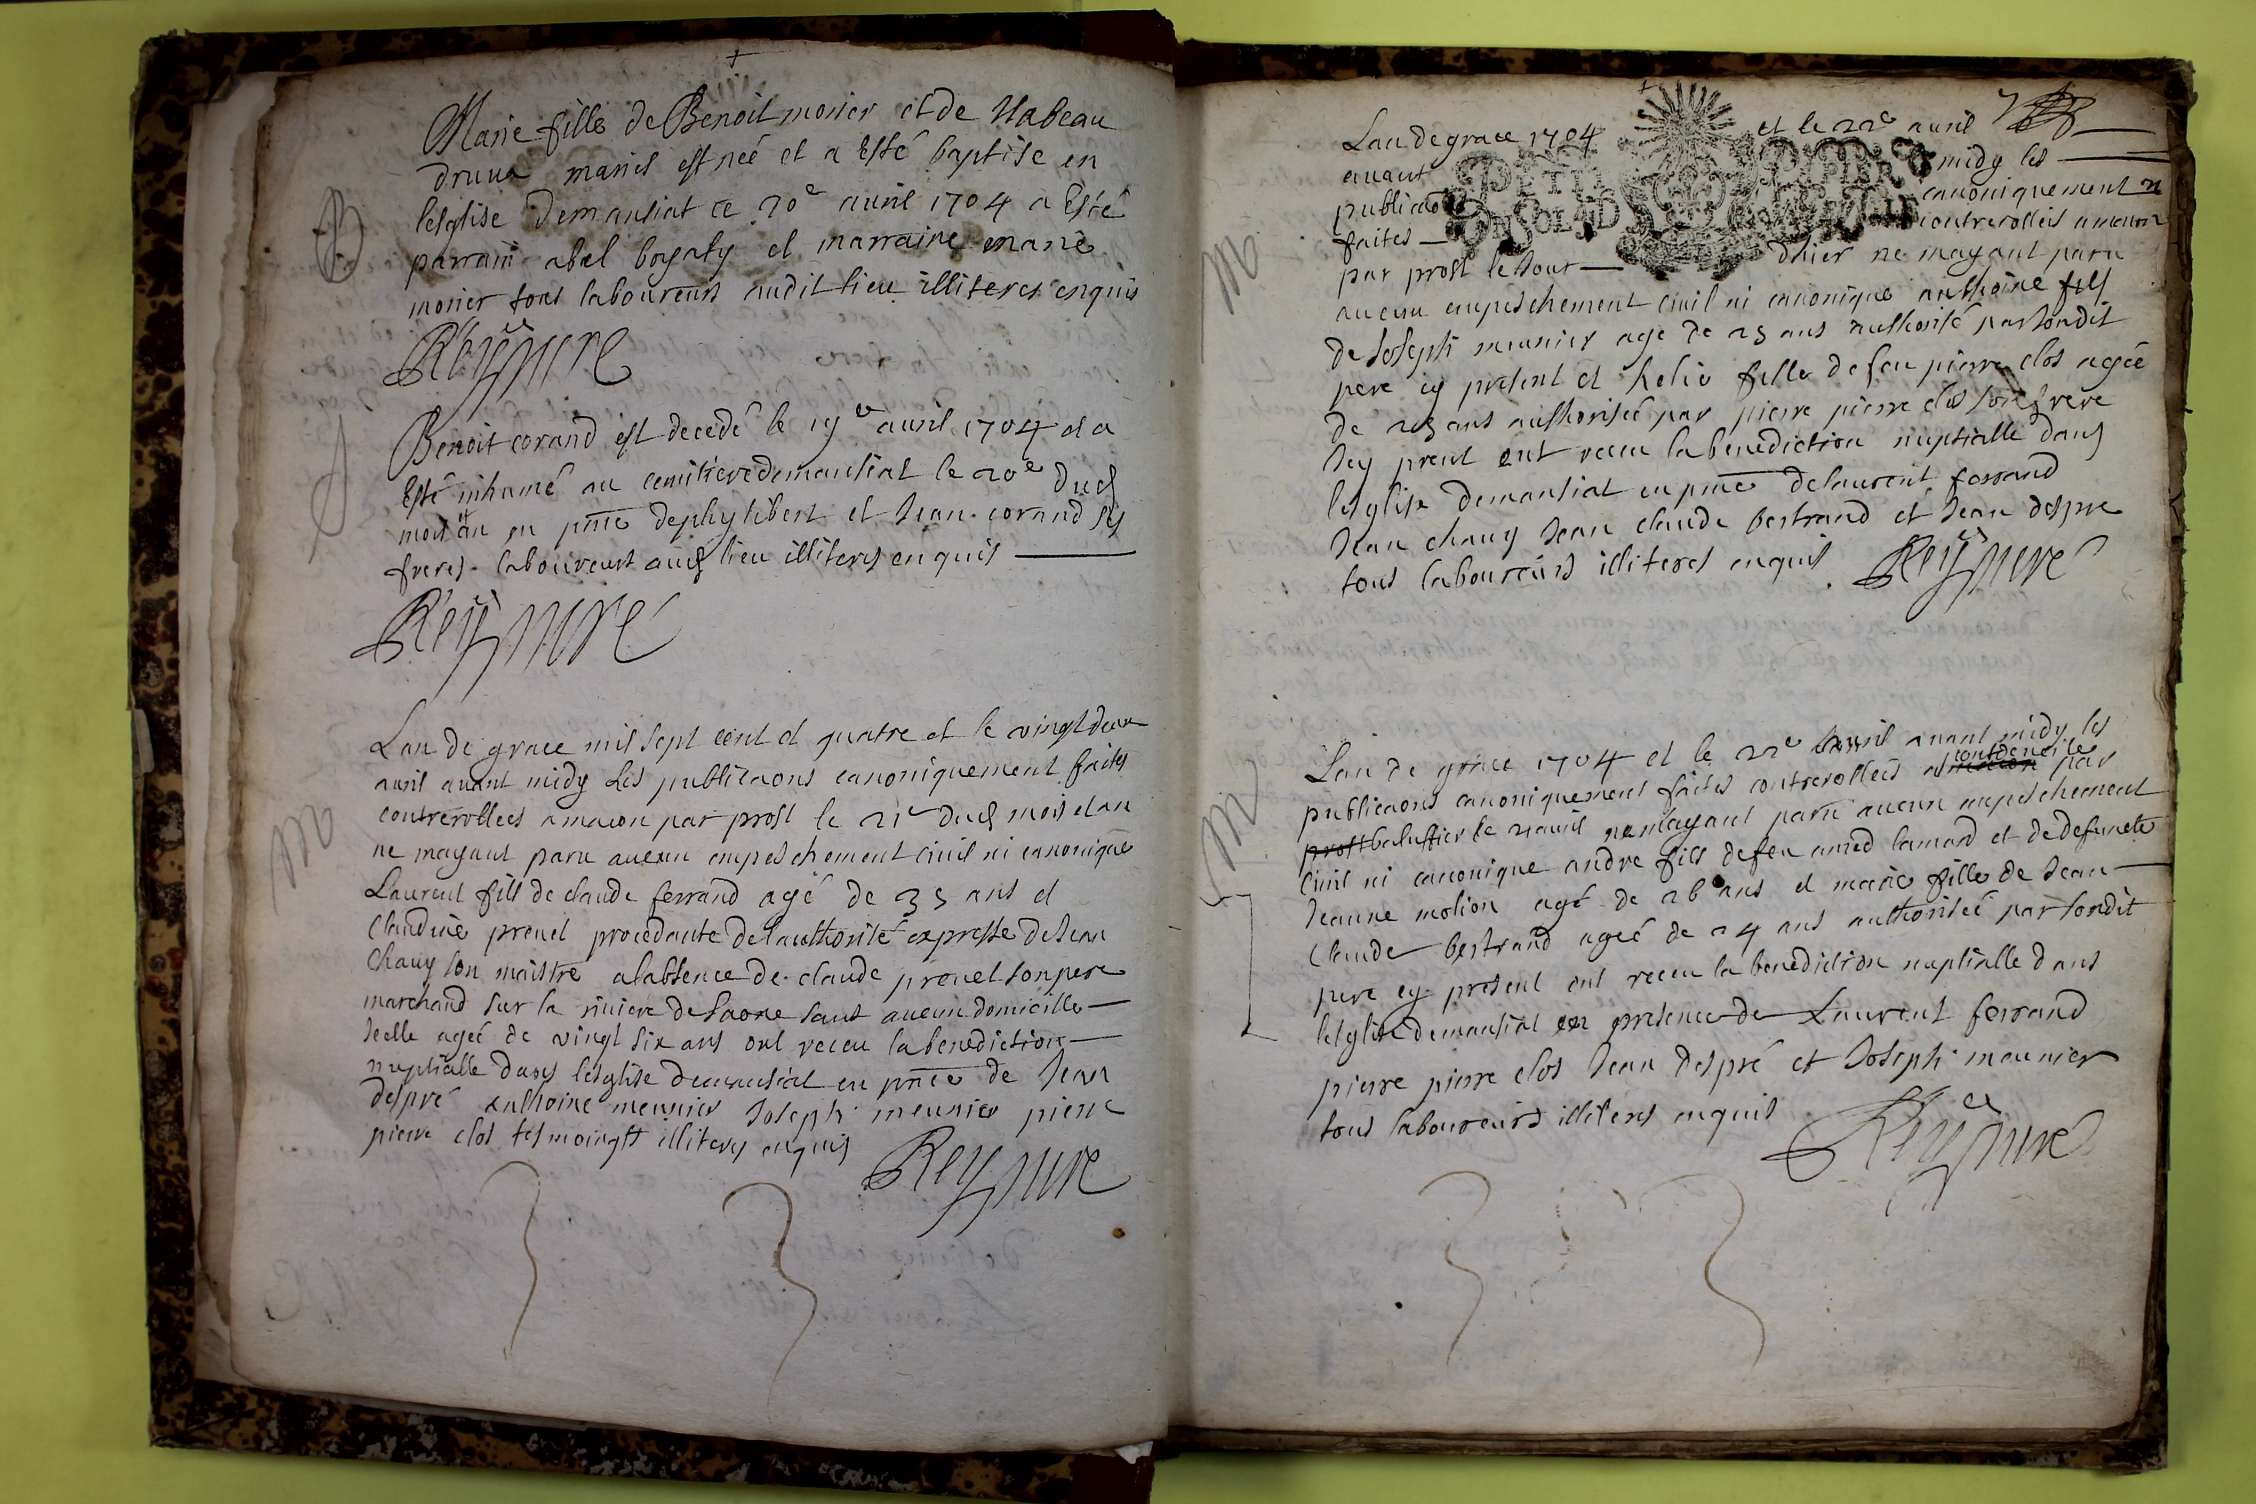 Marie fille de Benoit monier et de Ysabeau
druua mariés est neé et a Esté baptise en
leseglise demansiat ce 20e auril 1704 a Esté
parrain abel boyaty et marraine marie
monier tous laboureurs audit lieu illiteres enquis
B
Reÿssure
Benoit corand est decedé le 19e auril 1704 et a
Esté inhumé au cemitiere demansiat le 20e dud
mois et an en pñce de phylibert et Jean corand ses
freres laboureurs aud lieu illiteres enquis
Reÿssure
Lan de grace mil sept cent et quatre et le vingt deux
auril auant midy les publicaons canoniquement faites
controrollees a macon par prost le 21e dud mois et an
ne mayant paru aucun empeschement ciuil ni canonique
M
Laurent fils de claude ferrand agé de 35 ans et
Claudine preuel procedante de lauthorité expresse de Jean
Chauy son maistre a labsence de claude preuel son pere
marchand sur la riuiere de saone sans aucun domicille
icelle ageé de vingt six ans ont receu la benediction
nuptialle dans leseglise demansiat en pñce de Jean
despré anthoine meunier Joseph meunier pierre
pierre clos tesmoings illiteres enquis
Reyssure
Lan de grace 1704 et le 22e auril
auant midy les
publicaõs canoniquement
faites controrolleés a macon
par prost le Jour dhier ne mayant paru
PETIT PAPIER
M
aucun empeschement ciuil ni canonique anthoine fils
de Joseph meunier age de 25 ans authorisé par sondit
pere cy present et helie fille de feu pierre clos ageé
de 25 ans authoriseé par pierre pierre clos son frere
icy prent ont receu la benediction nuptialle dans
leseglise demansiat en pñce de laurent ferrand
Jean chauy Jean claude bertrand et Jean despre
tous laboureurs illiteres enquis
Reÿssure
Lan de grace 1704 et le 22e auril auant midy les
publicaons canoniquement faites controrolleés par
prost baluffier le 21 auril ne mayant paru aucun empeschement
M
ciuil ni canonique andre fils de feu amed lamard et de defuncte
Jeanne motion agé de 26 ans et marie fille de Jean
Claude bertrand ageé de 24 ans authoriseé par sondit
pere cy present ont receu la benediction nuptialle dans
leseglise demansiat en presence de Laurent ferrand
pierre pierre clos Jean despré et Joseph meunier
tous laboureurs illiteres enquis
Reÿssure